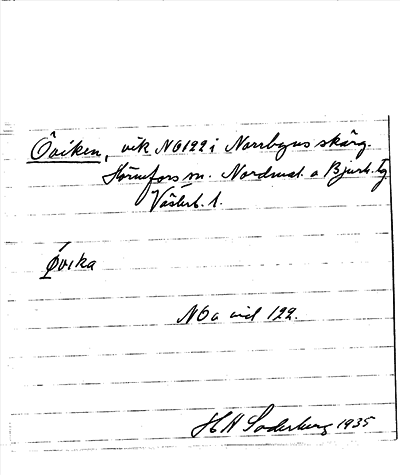 Öviken, vik NO122 i Norrbyns skärg.
Hörnefors sn. Nordmal. o Bjurh. tg
Västerb. l.
Övika
NO a vid 122.
H H Söderberg 1935